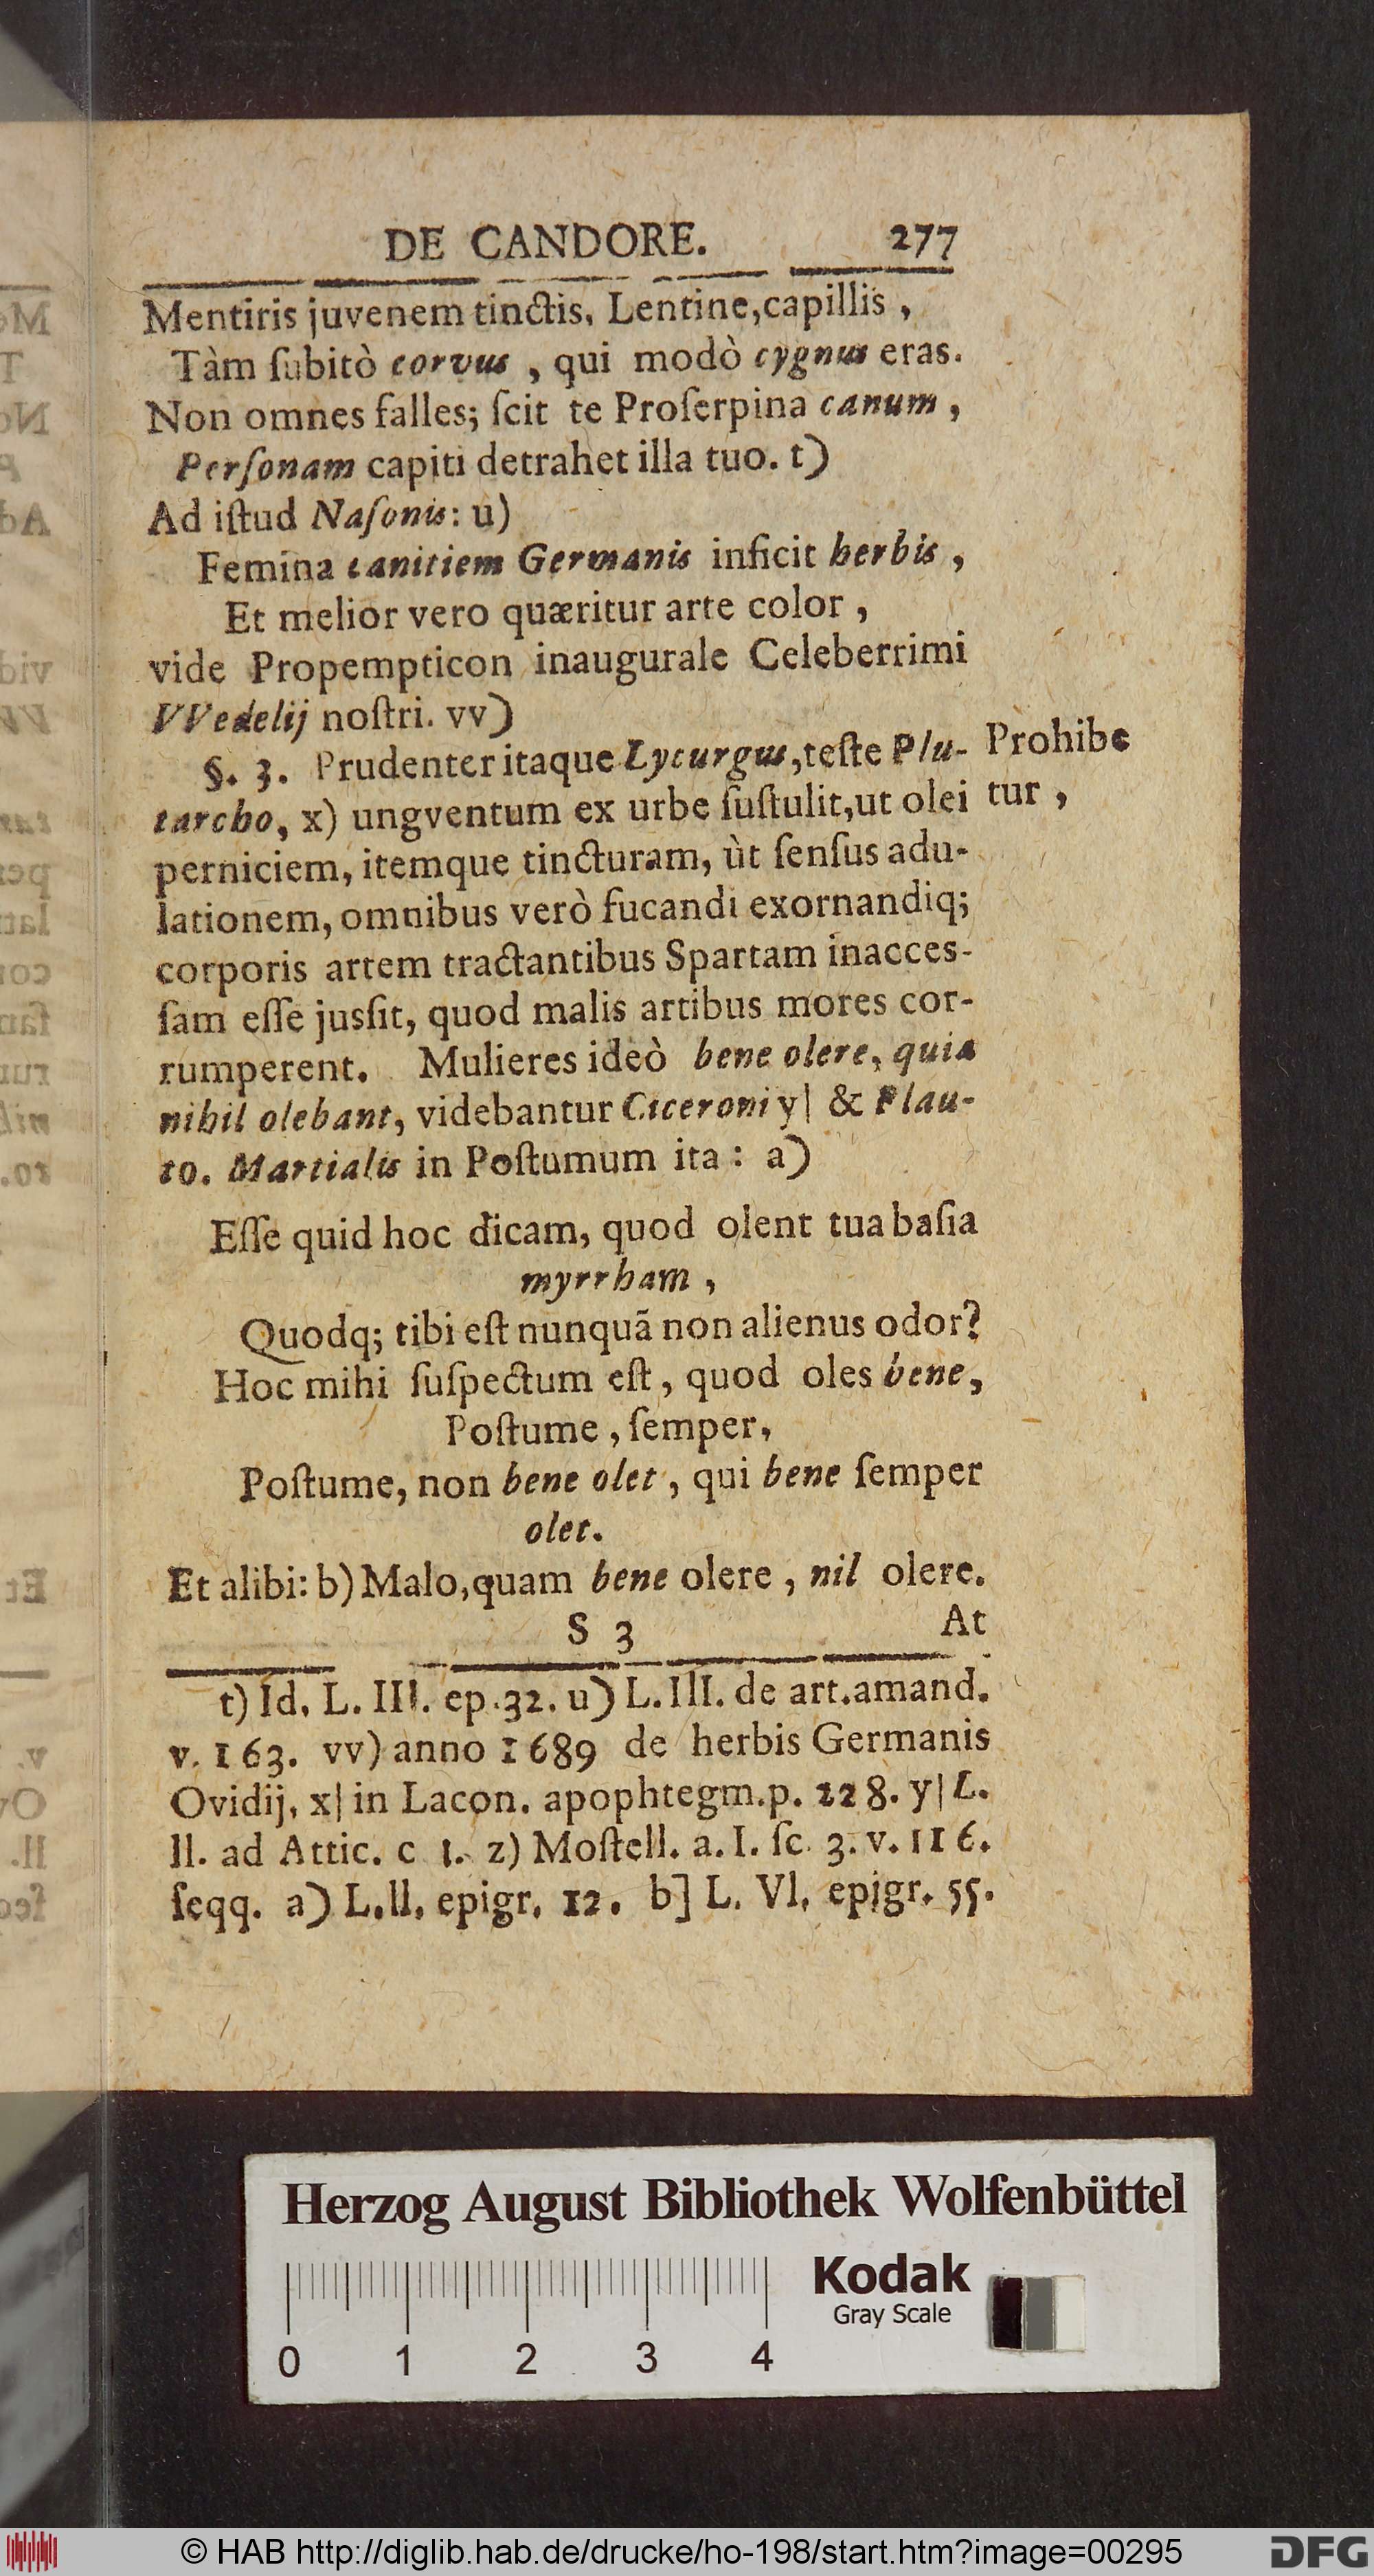 DE CANDORE. 277
Mentiris juvenem tinctis, Lentine,capillis ,
Tàm ſubitò corvus , qui modò cygnus eras.
Non omnes falles; ſcit te Proſerpina canum ,
Perſonam capiti detrahet illa tuo. t)
Ad iſtud Naſonis: u)
Femina canitiem Germanis inficit herbis ,
Et melior vero quæritur arte color ,
vide Propempticon inaugurale Celeberrimi
VVedelij noſtri. vv)
§. 3. Prudenter itaque Lycurgus,teſte Plu- Prohibe
tarcho, x) ungventum ex urbe ſuſtulit,ut olei tur ,
perniciem, itemque tincturam, ùt ſenſus adu-
lationem, omnibus verò fucandi exornandiq;
corporis artem tractantibus Spartam inacces-
ſam eſſe jusſit, quod malis artibus mores cor-
rumperent. Mulieres ideò bene olere, quia
nihil olebant, videbantur Ciceroni y| & Plau-
to. Martialis in Poſtumum ita : a)
Eſſe quid hoc dicam, quod olent tua baſia
myrrham ,
Quodq; tibi eſt nunquã non alienus odor?
Hoc mihi ſuſpectum eſt , quod oles bene,
Poſtume , ſemper,
Poſtume, non bene olet , qui bene ſemper
olet.
Et alibi: b) Malo,quam bene olere , nil olere.
S 3 At
t) Id. L. III. ep.32. u) L.III. de art.amand.
v. 163. vv) anno 1689 de herbis Germanis
Ovidij, x| in Lacon. apophtegm.p. 228. y| L.
ll. ad Attic. c 1. z) Moſtell. a. I. ſc. 3. v. 116.
ſeqq. a) L.ll, epigr. 12. b] L. Vl, epigr. 55.
Herzog August Bibliothek Wolfenbüttel
Kodak
Gray Scale
0 1 2 3 4
© HAB http://diglib.hab.de/drucke/ho-198/start.htm?image=00295 DFG